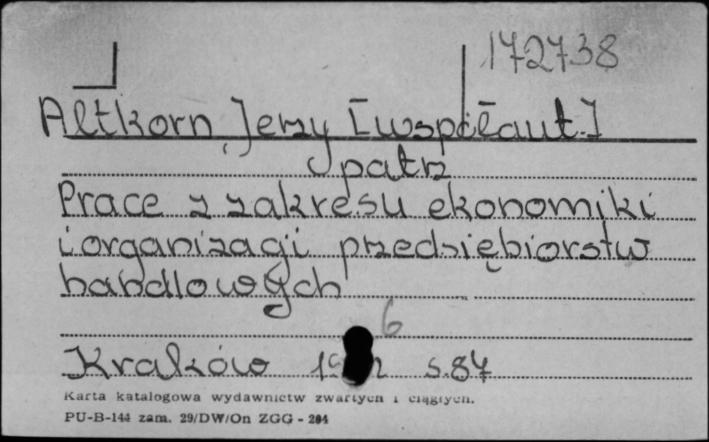 172738
Altkorn, Jerzy [współaut.]
patrz
Prace z zakresu ekonomiki
i organizacji przedsiębiorstw
handlowych
6
Kraków s. 84
Karta katalogowa wydawnictw zwartych i ciągłych.
PU-B-144 zam. 29/DW/On ZGG - 284